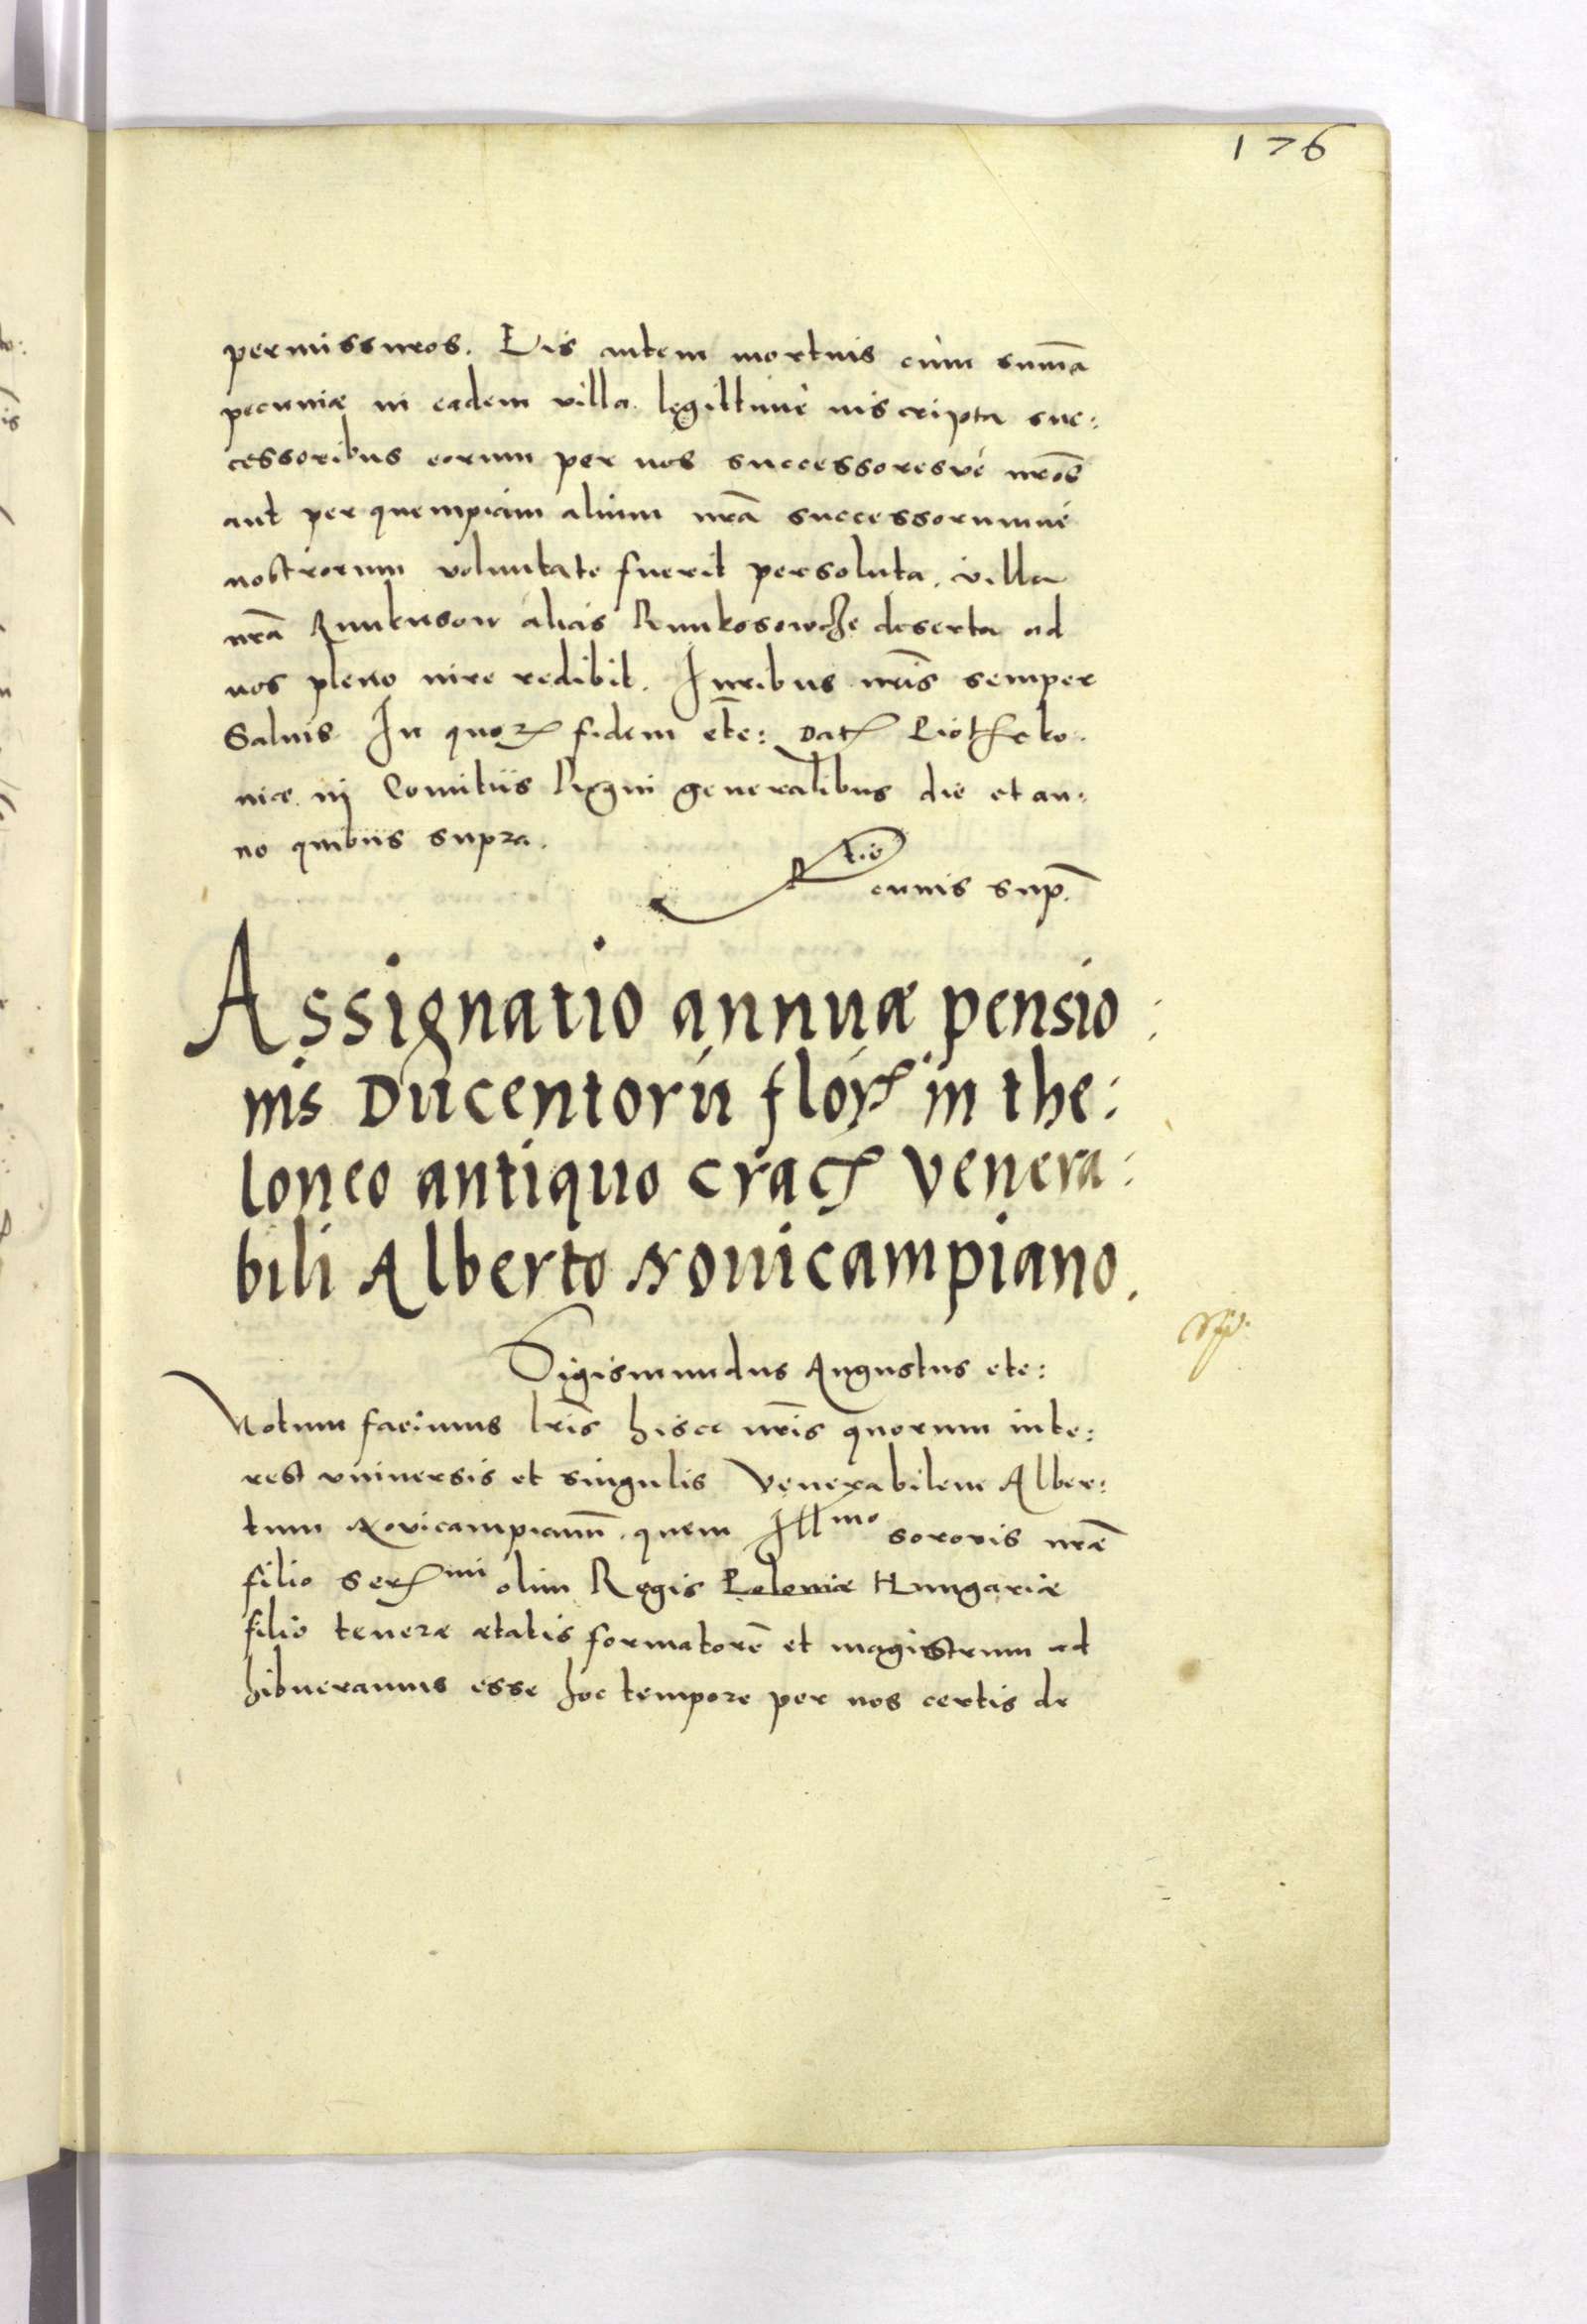 176
permissuros. Eis autem mortuis cum sum̃a
pecuniæ in eadem villa legittimè inscripta suc:
cessoribus eorum per nos successoresvé nr̃os
aut per quempiam alium nr̃a successorumué
nostrorum voluntate fuerit persoluta. villa
nr̃a Runkusow alias Runkosowcze deserta ad
nos pleno iure redibit. Iuribus nr̃is semper
Saluis In quoꝝ fidem etc: Datꝭ Piotrko
niæ in Comitiis Regni generalibus die et an:
no quibus supra.
R̃tio
cuius sup.
Assignatio annuæ pensio:
nis Ducentorū florꝭ in the:
loneo antiquo cracꝭ venera:
bili Alberto Nouicampiano.
Sigismundus Augustus etc:
Notum facimus lr̃is hisce nr̃is quorum inte:
rest vniuersis et singulis Venerabilem Alber:
tum Novicampianũ. quem Illmo sororis nr̃æ
filio Serꝭmi olim Regis Poloniæ Hungariæ
filio teneræ ætatis formatorẽ et magistrum ad
hibueramus esse hoc tempore per nos certis de